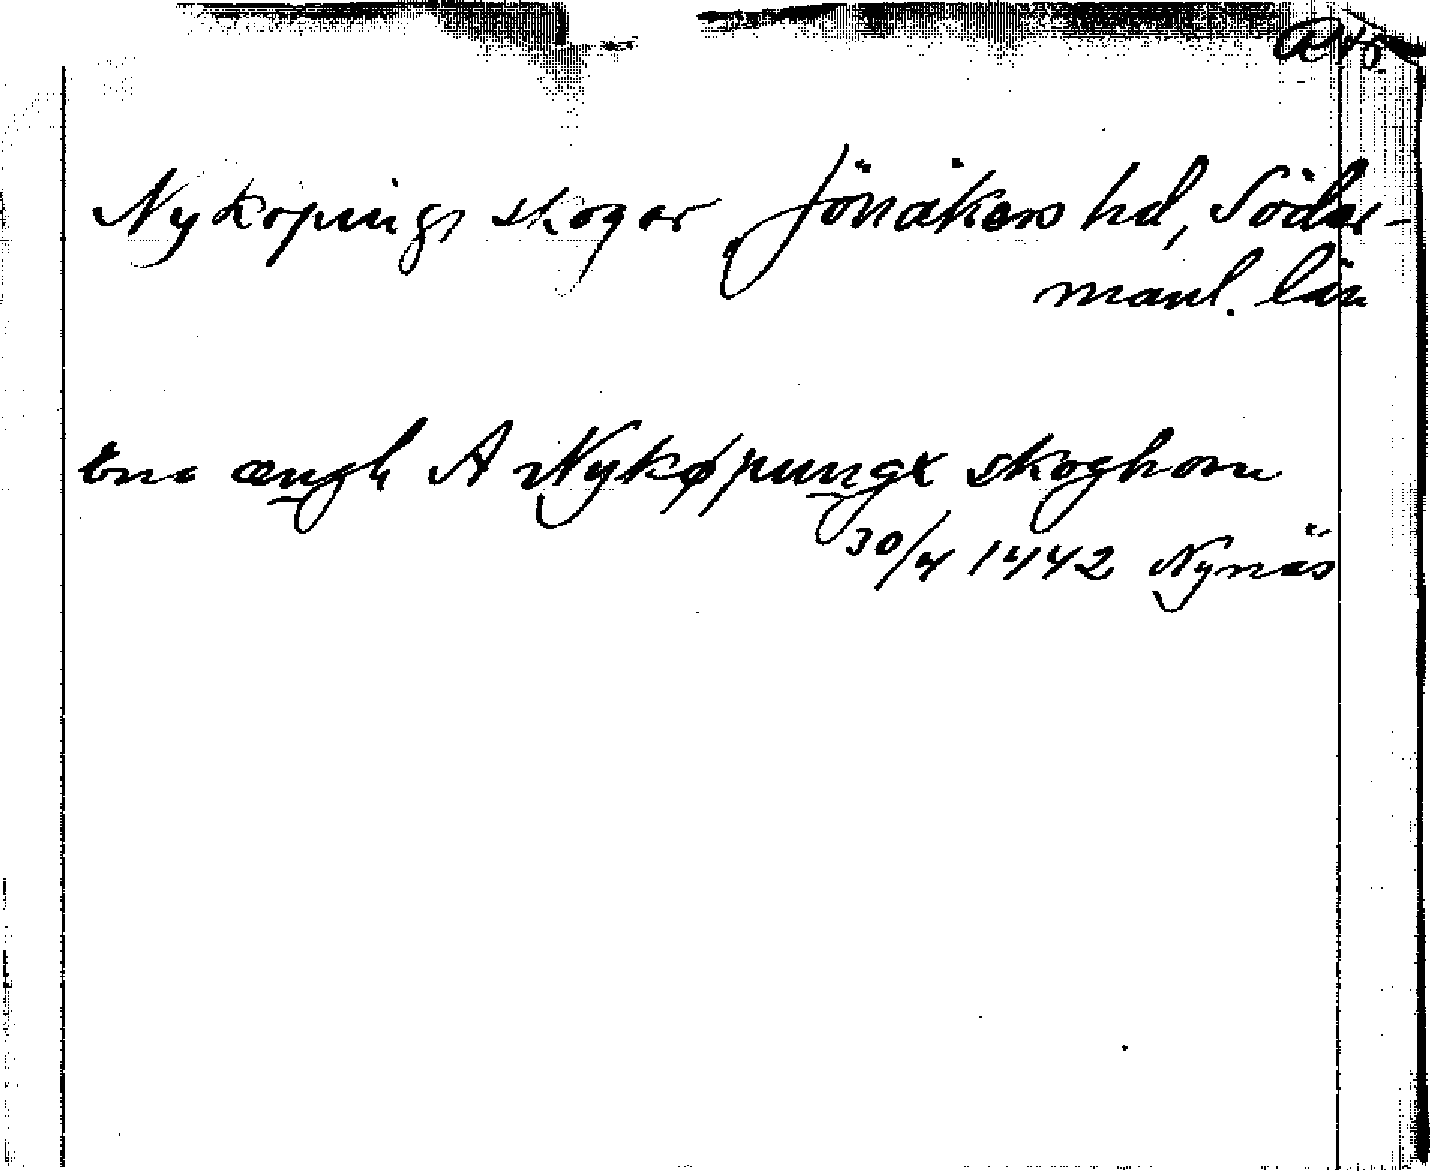 Nyköpings skogar Jönåkers hd, Söder-
manl. län
ena ængh A Nykøpungx skoghom
30/4 1442 Nynäs